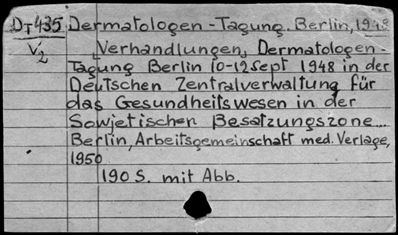 DT435 Dermatologen-Tagung. Berlin, 1948
V2 Verhandlungen, Dermatologen-
Tagung Berlin 10-12 Sept 1948 in der
Deutschen Zentralverwaltung für
das Gesundheitswesen in der
Sowjetischen Besatzungszone...
Berlin, Arbeitsgemeinschaft med. Verlage,
1950
190 S. mit Abb.